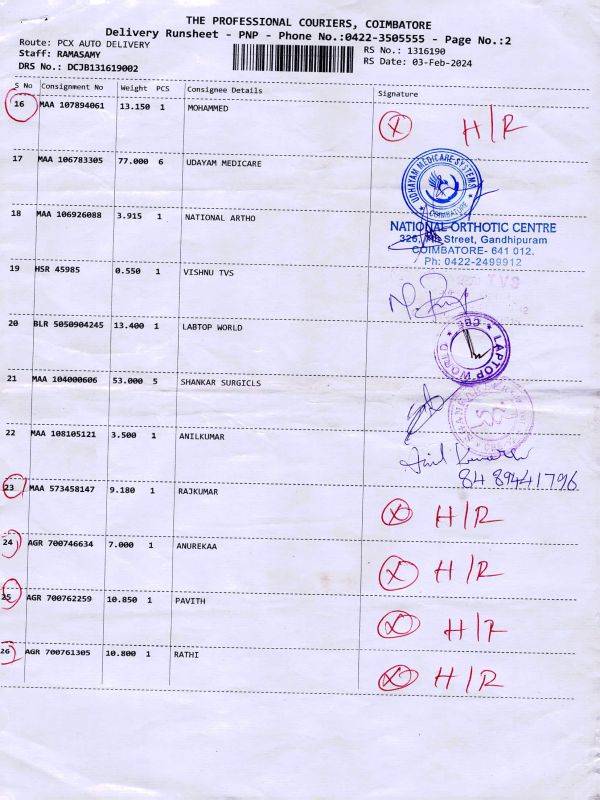 THE PROFESSIONAL COURIERS, COIMBATORE
Delivery Runsheet - PNP - Phone No.:0422-3505555 - Page No.:2
Route: PCX AUTO DELIVERY RS No.: 1316190
Staff: RAMASAMY RS Date: 03-Feb-2024
DRS No.: DCJB131619002
S No Consignment No Weight PCS Consignee Details Signature
16 MAA 107894061 13.150 1 MOHAMMED X H/R
17 MAA 106783305 77.000 6 UDAYAM MEDICARE
UDHAYAM MEDICARE SYSTEMS
COIMBATORE
18 MAA 106926088 3.915 1 NATIONAL ARTHO
NATIONAL ORTHOTIC CENTRE
326, Street, Gandhipuram
COIMBATORE- 641 012.
Ph: 0422-2499912
19 HSR 45985 0.550 1 VISHNU TVS
TVS
20 BLR 5050904245 13.400 1 LABTOP WORLD
LAPTOP WORLD
CBE
21 MAA 104000606 53.000 5 SHANKAR SURGICLS
22 MAA 108105121 3.500 1 ANILKUMAR
8489441796
23 MAA 573458147 9.180 1 RAJKUMAR X H/R
24 AGR 700746634 7.000 1 ANUREKAA X H/R
25 AGR 700762259 10.850 1 PAVITH X H/R
26 AGR 700761305 10.800 1 RATHI X H/R